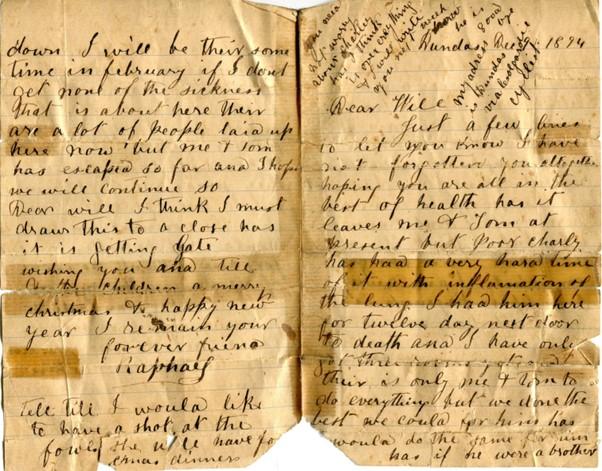 Dundas Dec 1894
Dear Will
Just a few lines
to let you know I have
not forgotten you altogether
hoping you are all in the
best of health has it
leaves me & Tom at
present but Poor Charly
has had a very hard time
of it with inflamation of
the lung I had him here
for twelve day next door
to death and I have only
got three rooms
their is only me & Tom to
do everything but we done the
best we could for him has
would do the same for him
has if he were a brother
down I will be their some
time in february if I dont
get none of the sickness
that is about here their
are a lot of people laid up
here now but me & Tom
has escaped so far and I hope
we will continue so
Dear will I think I must
draw this to a close has
it is getting late
wishing you and till
& the children a merry
christmas & happy new
year I remain your
forever friend
Raphael
tell till I would like
to have a shot at the
fowls she will have for
xmas dinners
you need
not worry
about
has I think
he is over everything
I will write
you next week
good bye
my adress
is Dundas
via